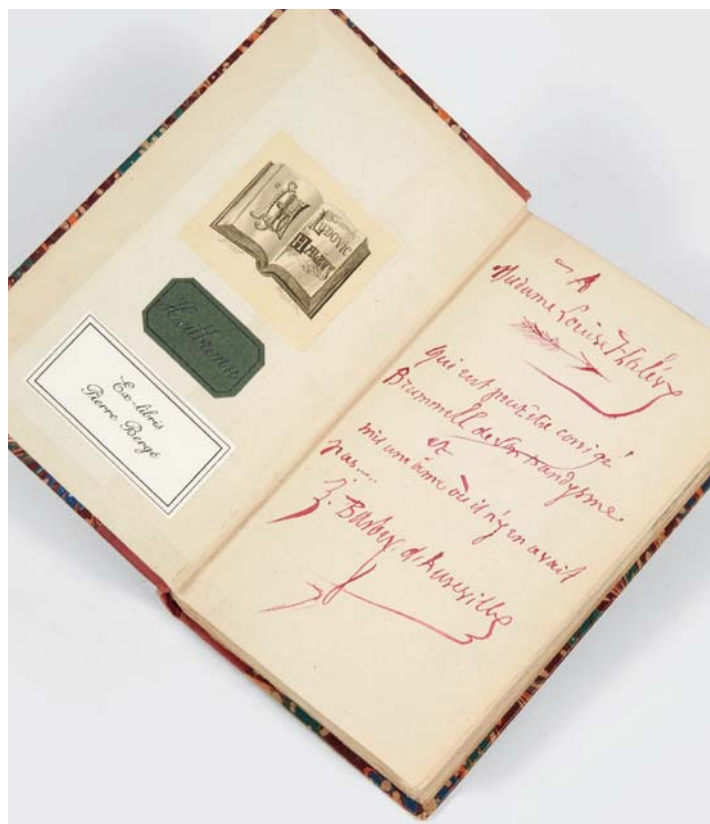 LUDOVIC
HALEVY
Ex-libris
Pierre Bergé
— A
Madame Louise Halévy
qui eut peut-être corrigé
Brummell de son Dandysme
et
mis une âme où il n'y en avait
pas....
J. Barbey d'Aurevilly